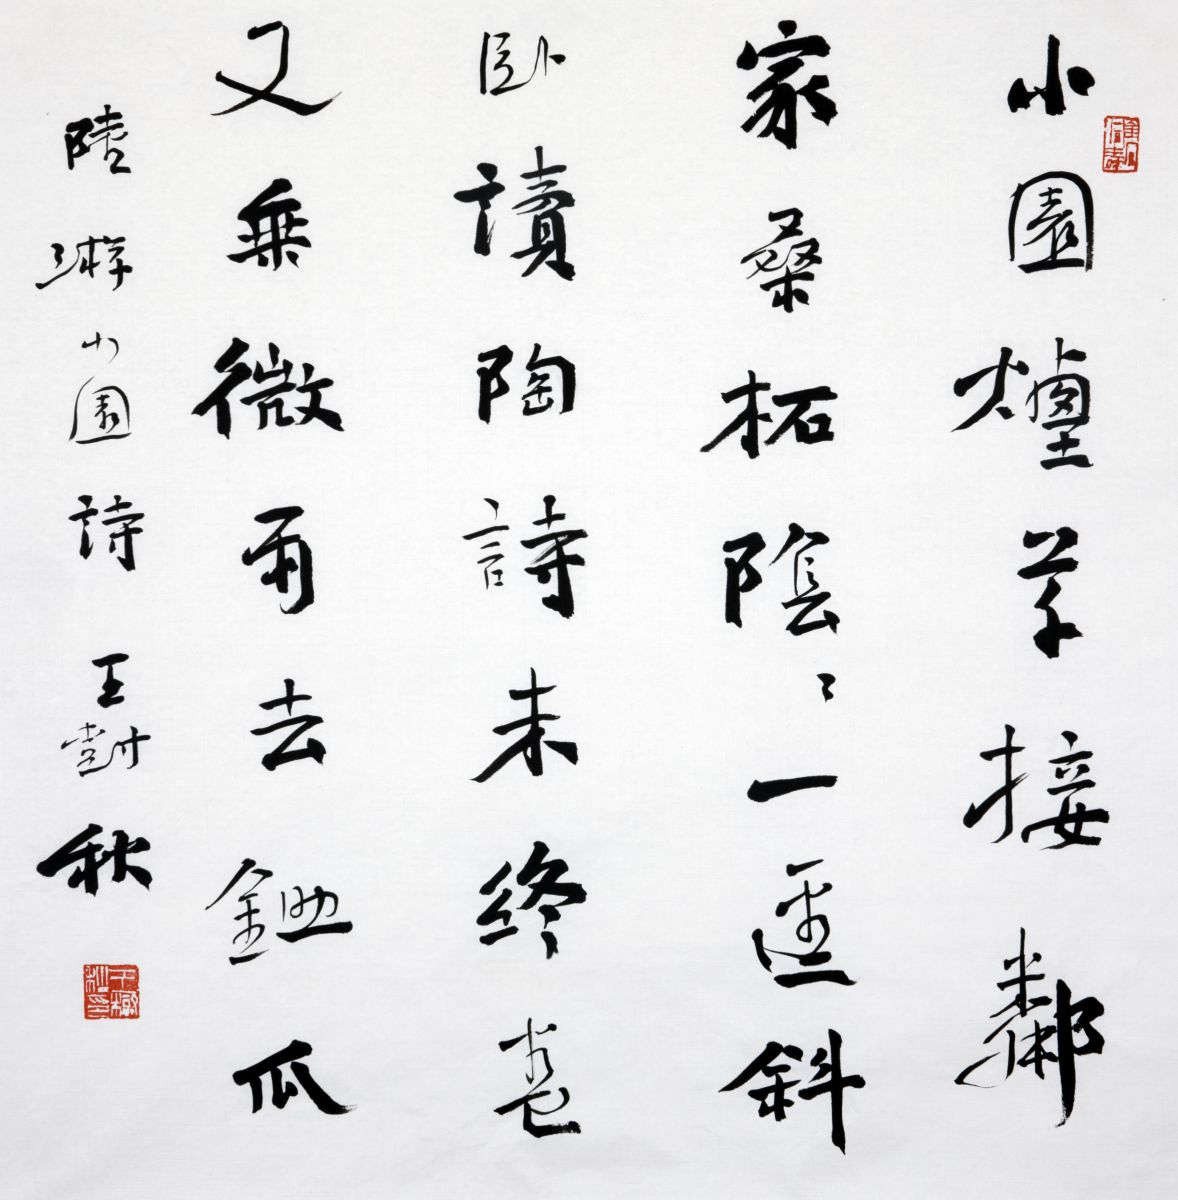 小園煙草接鄰
家桑柘陰〻一逕斜
卧讀陶詩未終卷
又乘微雨去鋤瓜
陸游小園詩 王樹秋
王樹秋印